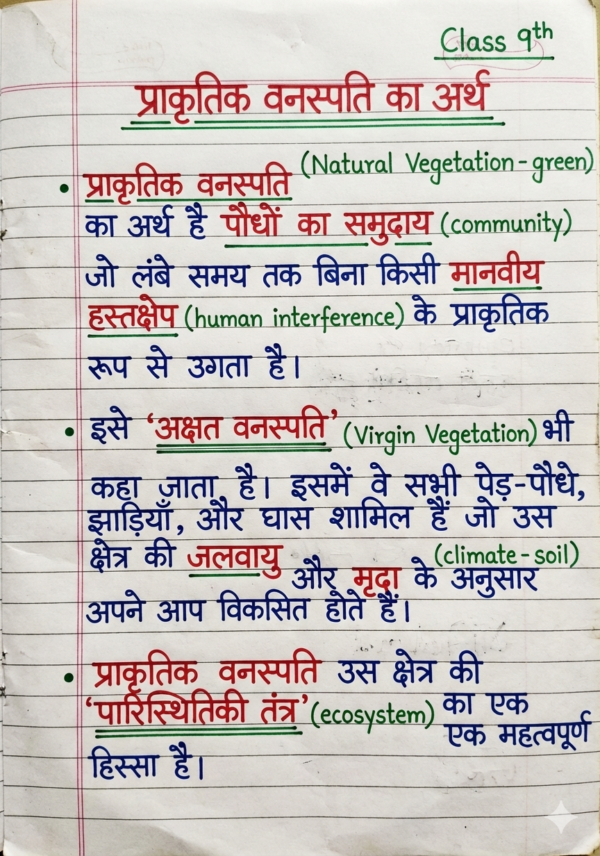 Class 9th
प्राकृतिक वनस्पति का अर्थ
• प्राकृतिक वनस्पति (Natural Vegetation - green)
का अर्थ है पौधों का समुदाय (community)
जो लंबे समय तक बिना किसी मानवीय
हस्तक्षेप (human interference) के प्राकृतिक
रूप से उगता है।
• इसे ‘अक्षत वनस्पति’ (Virgin Vegetation) भी
कहा जाता है। इसमें वे सभी पेड़-पौधे,
झाड़ियाँ, और घास शामिल हैं जो उस
क्षेत्र की जलवायु और मृदा (climate - soil) के अनुसार
अपने आप विकसित होते हैं।
• प्राकृतिक वनस्पति उस क्षेत्र की
‘पारिस्थितिकी तंत्र’ (ecosystem) का एक
एक महत्वपूर्ण
हिस्सा है।